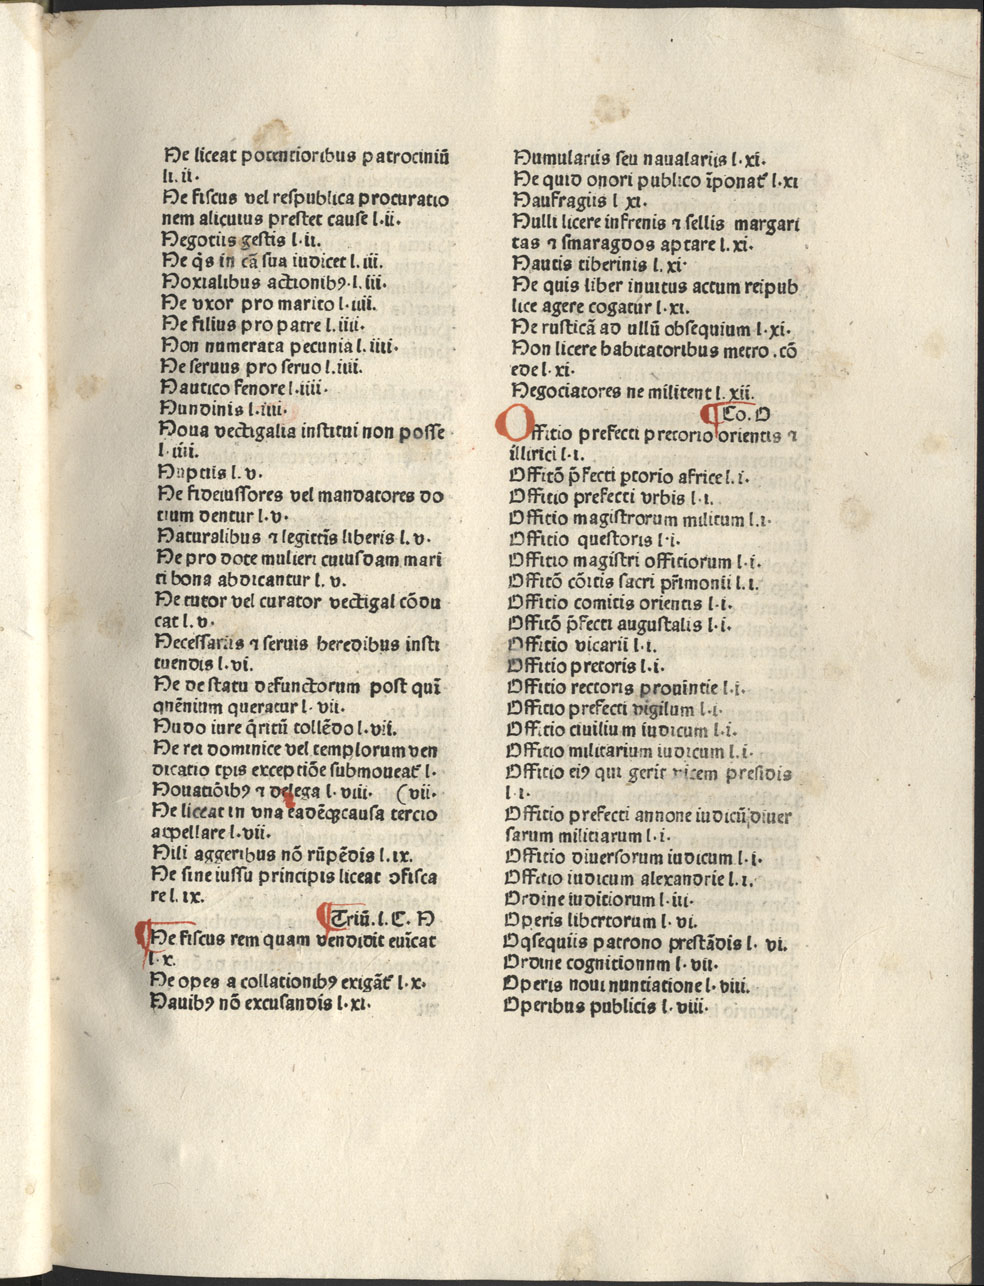 Ne liceat potentioribus patrociniū
li. ii.
Ne fiscus vel respublica procuratio
nem alicuius prestet cause l. ii.
Negotiis gestis l. ii.
Ne q̄s in cā sua iudicet l. iii.
Noxialibus actionibꝰ l. iii.
Ne vxor pro marito l. iiii.
Ne filius pro patre l. iiii.
Non numerata pecunia l. iiii.
Ne seruus pro seruo l. iiii.
Nautico fenore l. iiii.
Nundinis l. iiii.
Noua vectigalia institui non posse
l. iiii.
Nuptiis l. v.
Ne fideiussores vel mandatores do
tium dentur l. v.
Naturalibus ⁊ legittīs liberis l. v.
Ne pro dote mulieri cuiusdam mari
ti bona abdicantur l. v.
Ne tutor vel curator vectigal cōdu
cat l. v.
Necessariis ⁊ seruis heredibus insti
tuendis l. vi.
Ne de statu defunctorum post quī
quēnium queratur l. vii.
Nudo iure q̄ritū tollēdo l. vii.
Ne rei dominice vel templorum ven
dicatio tp̄is exceptiōe submoueat̄ l.
Nouatiōibꝰ ⁊ delega l. viii. (vii.
Ne liceat in vna eadēqꝫ causa tercio
appellare l. vii.
Nili aggeribus nō rūpēdis l. ix.
Ne sine iussu principis liceat ɔfisca
re l. ix.
¶ Triū. l. C. N
¶ Ne fiscus rem quam vendidit euīcat
l. x.
Ne opes a collationibꝰ exigāt̄ l. x.
Nauibꝰ nō excusandis l. xi.
Numulariis seu naualariis l. xi.
Ne quid onori publico īponat̄ l. xi
Naufragiis l xi.
Nulli licere in frenis ⁊ sellis margari
tas ⁊ smaragdos aptare l. xi.
Nautis tiberinis l. xi.
Ne quis liber inuitus actum reipub
lice agere cogatur l. xi.
Ne rusticā ad ullū obsequium l. xi.
Non licere habitatoribus metro. cō
ede l. xi.
Negociatores ne militent l. xii.
¶ Co. O
Offitio prefecti pretorio orientis ⁊
illirici l. i.
Offitō p̄fecti ptorio africe l. i.
Offitio prefecti vrbis l. i.
Offitio magistrorum militum l. i.
Offitio questoris l. i.
Offitio magistri offitiorum l. i.
Offitō cōitis sacri pr̄imonii l. i.
Offitio comitis orientis l. i.
Offitō p̄fecti augustalis l. i.
Offitio vicarii l. i.
Offitio pretoris l. i.
Offitio rectoris prouintie l. i.
Offitio prefecti vigilum l. i.
Offitio ciuilium iudicum l. i.
Offitio militarium iudicum l. i.
Offitio eiꝰ qui gerit vicem presidis
l. i.
Offitio prefecti annone iudicū diuer
sarum militiarum l. i.
Offitio diuersorum iudicum l. i.
Offitio iudicum alexandrie l. i.
Ordine iuditiorum l. iii.
Operis libertorum l. vi.
Oqsequiis patrono prestādis l. vi.
Ordine cognitionnm l. vii.
Operis noui nuntiatione l. viii.
Operibus publicis l. viii.